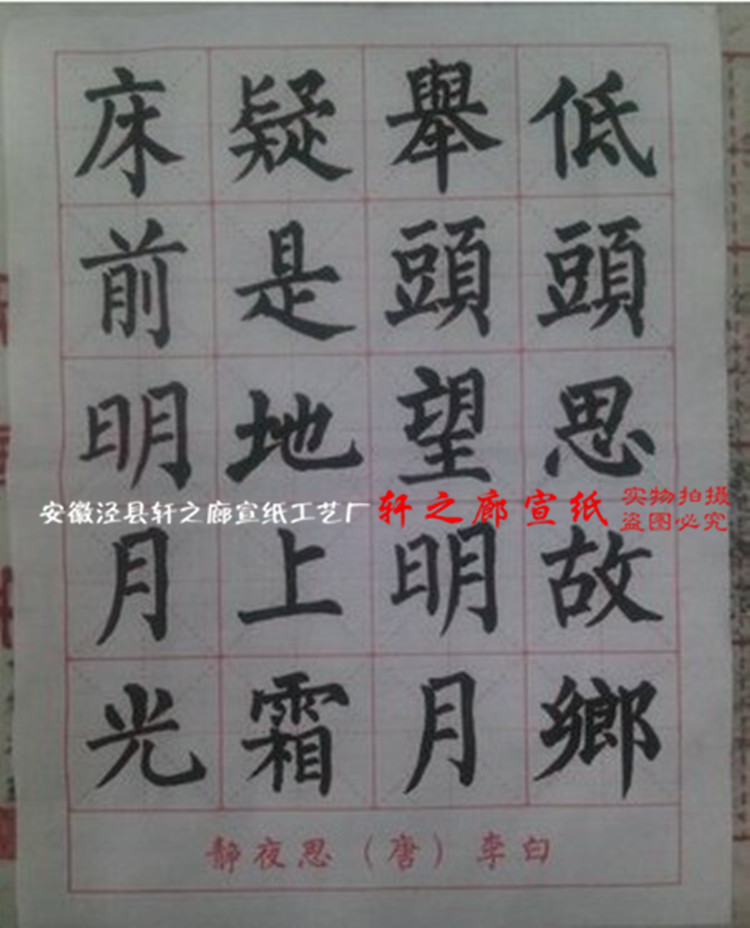 床前明月光
疑是地上霜
舉頭望明月
低頭思故鄉
静夜思（唐）李白
安徽泾县轩之廊宣纸工艺厂
轩之廊宣纸
实物拍摄
盗图必究